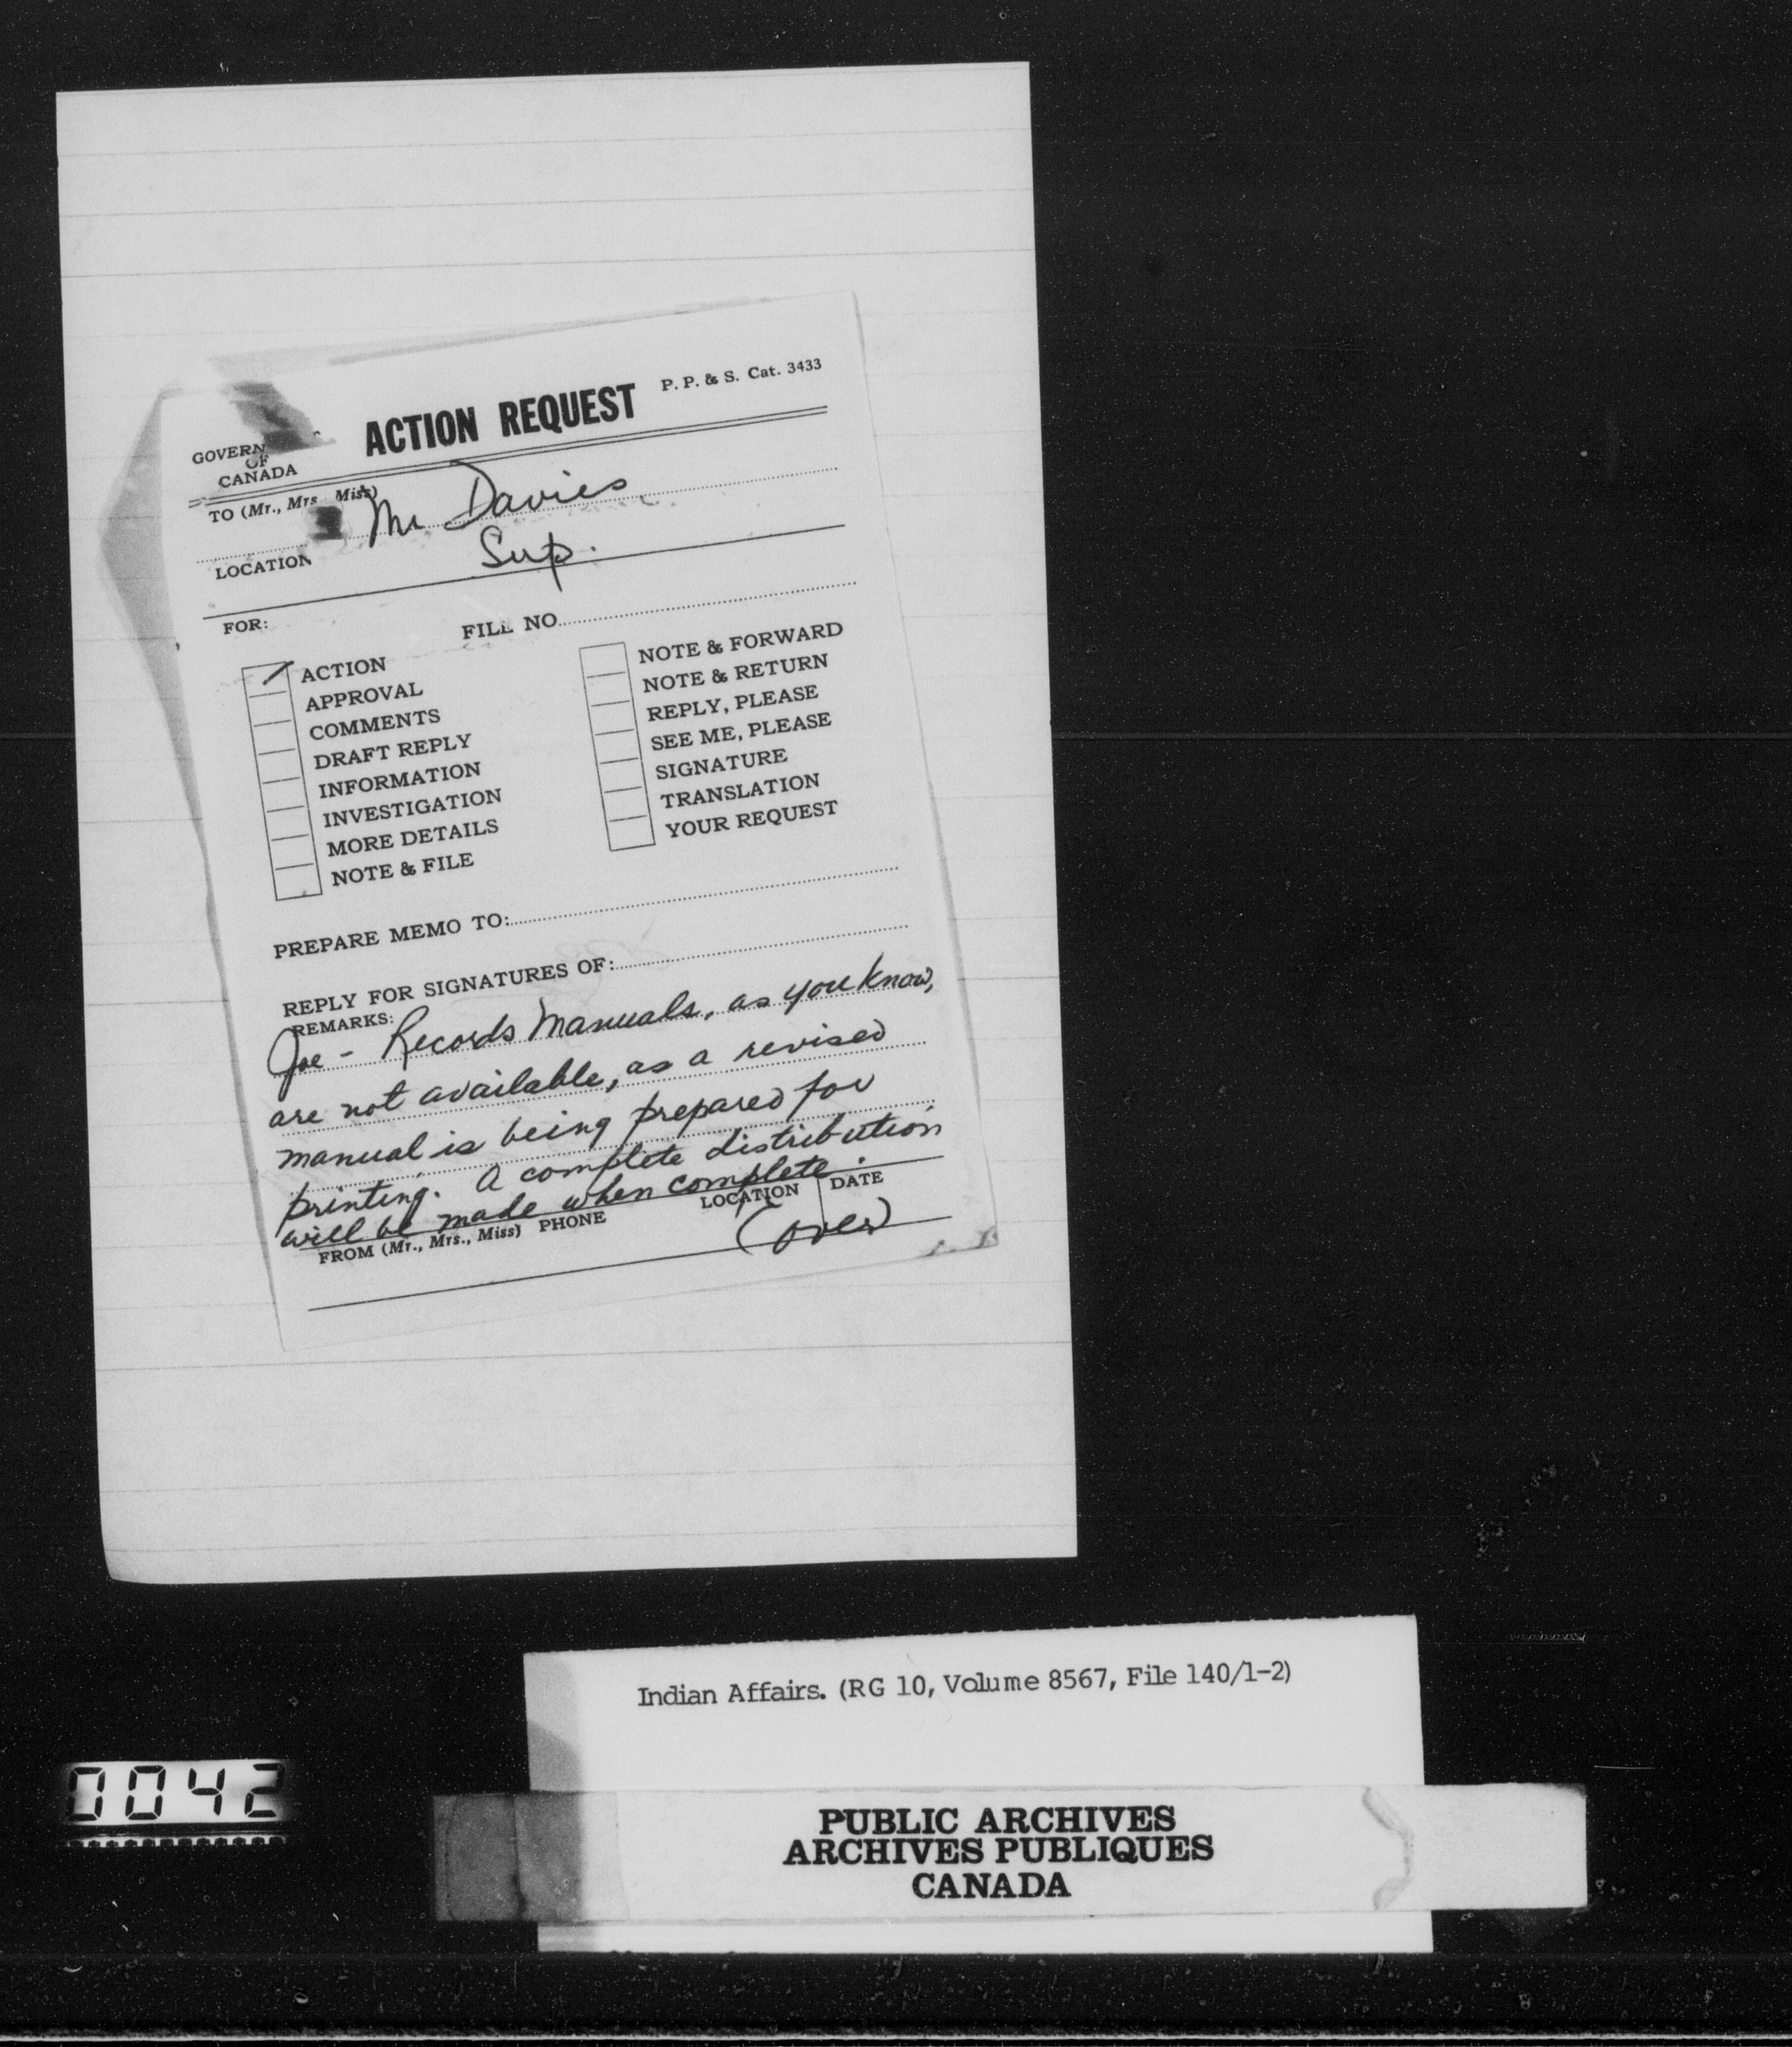 P. P. & S. Cat. 3433
ACTION REQUEST
GOVERN
OF
CANADA
TO (Mr., Mrs. Miss) Mr Davies
LOCATION Sup.
FOR:
FILE NO
ACTION
APPROVAL
COMMENTS
DRAFT REPLY
INFORMATION
INVESTIGATION
MORE DETAILS
NOTE & FILE
NOTE & FORWARD
NOTE & RETURN
REPLY, PLEASE
SEE ME, PLEASE
SIGNATURE
TRANSLATION
YOUR REQUEST
PREPARE MEMO TO:
REPLY FOR SIGNATURES OF:
REMARKS:
Joe - Records Manuals, as you know,
are not available, as a revised
manual is being prepared for
printing. A complete distribution
will be made when complete.
FROM (Mr., Mrs., Miss) PHONE LOCATION DATE
(over)
Indian Affairs. (RG 10, Volume 8567, File 140/1-2)
0042
PUBLIC ARCHIVES
ARCHIVES PUBLIQUES
CANADA